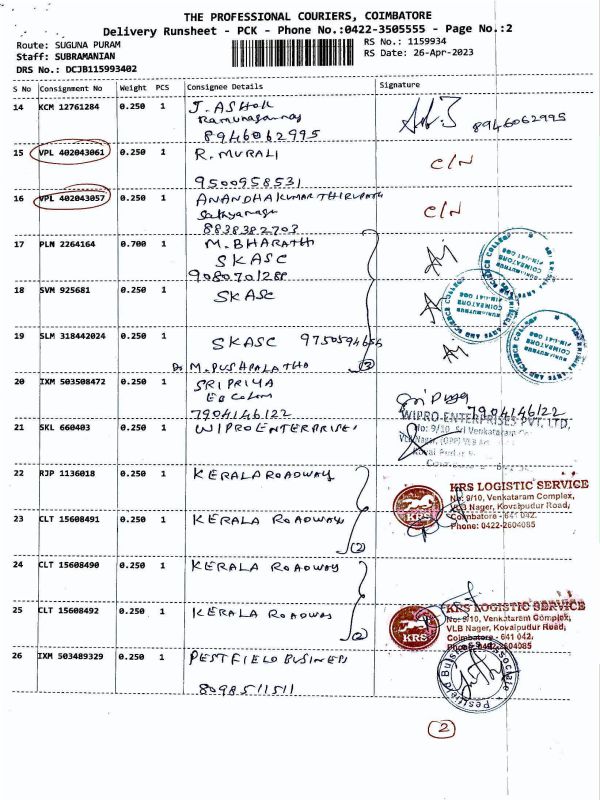 THE PROFESSIONAL COURIERS, COIMBATORE
Delivery Runsheet - PCK - Phone No.:0422-3505555 - Page No.:2
Route: SUGUNA PURAM RS No.: 1159934
Staff: SUBRAMANIAN RS Date: 26-Apr-2023
DRS No.: DCJB115993402
S No Consignment No Weight PCS Consignee Details Signature
14 KCM 12761284 0.250 1 J. ASHOK
8946062995 8946062995
15 VPL 402043061 0.250 1 R. MURALI C/N
9500958531
16 VPL 402043057 0.250 1 ANANDHAKUMAR C/N
8838382703
17 PLN 2264164 0.700 1 M. BHARATH
SKASC
9080701288
18 SVM 925681 0.250 1 SKASC
19 SLM 318442024 0.250 1 SKASC
M. PUSHPALATHA
20 IXM 503508472 0.250 1 SRI PRIYA
7904146122 7904146122
21 SKL 660403 0.250 1 WIPRO ENTERPRISES
WIPRO ENTERPRISES PVT. LTD.
No: 9/10, Sri Venkataram
22 RJP 1136018 0.250 1 KERALA ROADWAY
KRS LOGISTIC SERVICE
No: 9/10, Venkataram Complex,
VLB Nager, Kovaipudur Road,
Coimbatore - 641 042.
Phone: 0422-2604085
KRS
23 CLT 15608491 0.250 1 KERALA ROADWAY
(2)
24 CLT 15608490 0.250 1 KERALA ROADWAY
25 CLT 15608492 0.250 1 KERALA ROADWAY
(2)
KRS LOGISTIC SERVICE
No: 9/10, Venkataram Complex,
VLB Nager, Kovaipudur Road,
Coimbatore - 641 042.
Phone: 0422-2604085
KRS
26 IXM 503489329 0.250 1 PESTFIELD BUSINESS
8098511511
2